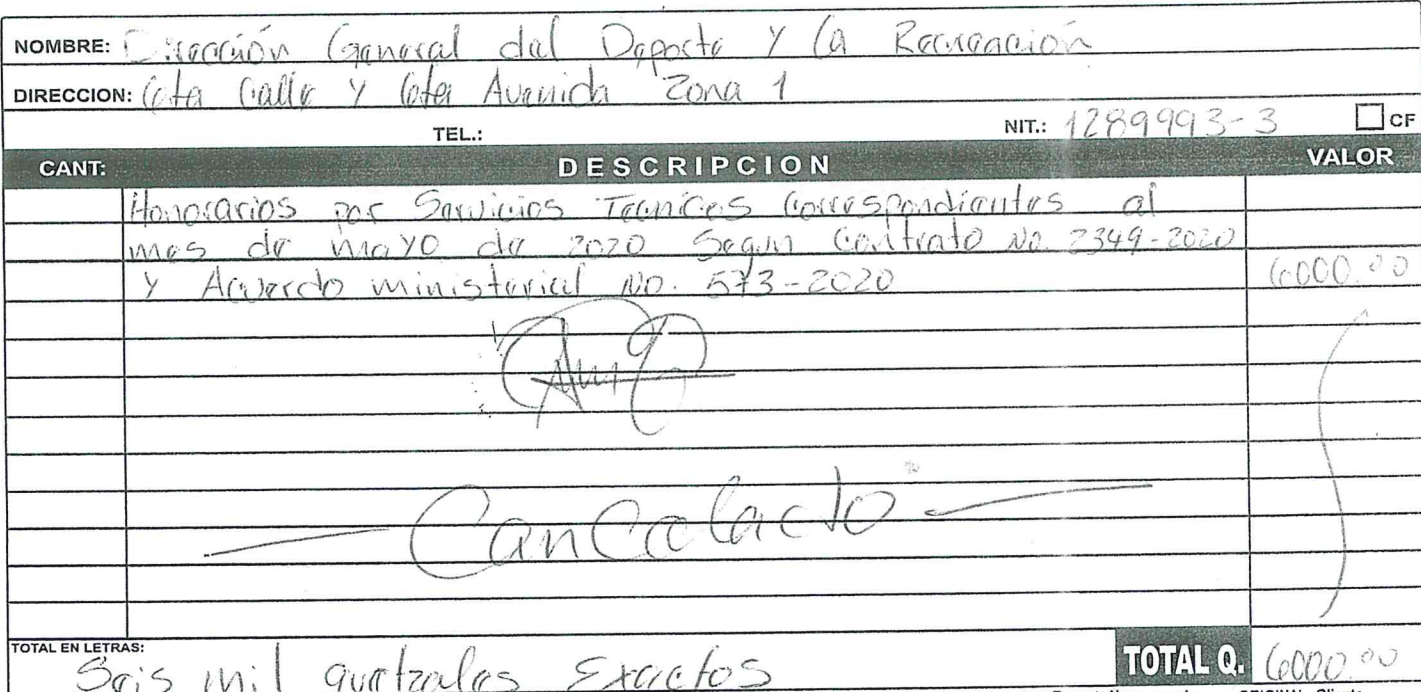 NOMBRE: Dirección General del Deporte y la Recreación
DIRECCION: 6ta Calle y 6ta Avenida Zona 1
TEL.: NIT.: 1289993-3 CF
CANT: DESCRIPCION VALOR
Honorarios por Servicios Tecnicos Correspondientes al
mes de mayo de 2020 Segun Contrato No. 2349-2020
y Acuerdo ministerial No. 573-2020 6000.00
Cancelado
TOTAL EN LETRAS: Seis mil quetzales Exactos TOTAL Q. 6000.00